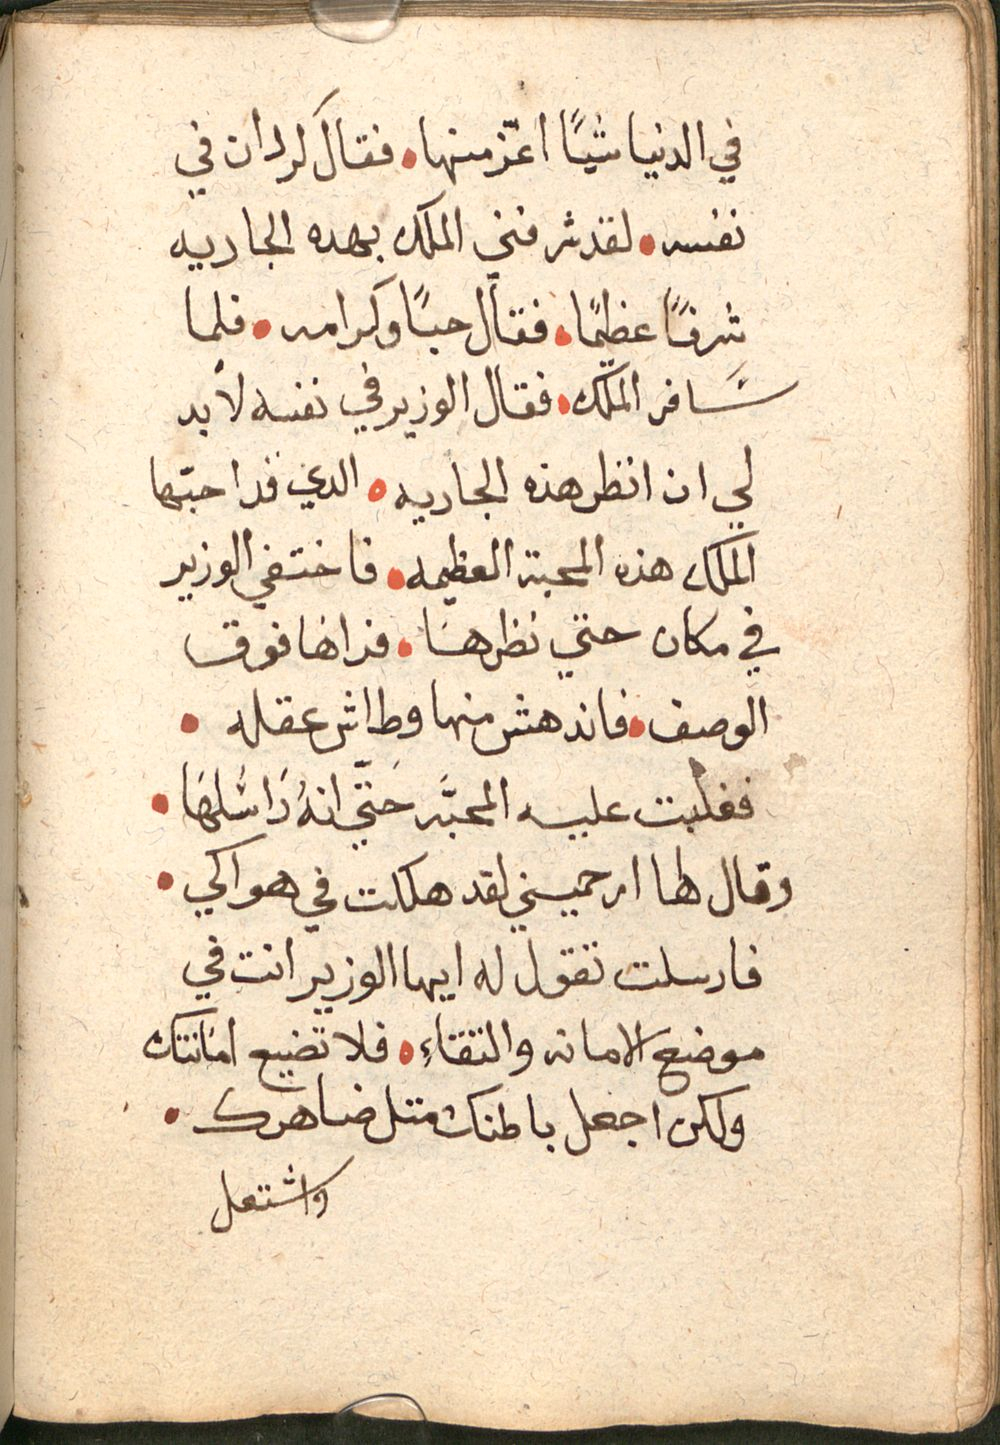 في الدنيا شيًا اعَّز منها • فقال كرادان في
نفسه • لقد شرفني الملك بهده الجاريه
شرفًا عظيمًا • فقال حبًا وكرامه • فلما
سافر الملك • فقال الوزير في نفسه لا بد
لي ان انظر هذه الجاريه • الدي قد احبّها
الملك هذه المحبة العظيمه • فاختفي الوزير
في مكان حتي نظرها • فراها فوق
الوصف • فاندهش منها وطاش عقله •
فغلبت عليه المحبَّه حَتّي انهُ رَاسَلهَا •
وقال لها ارحميني لقد هلكت في هواكي •
فارسلت تقول له ايها الوزير انت في
موضع الامانه والتقاء • فلا تضيع امَانتك
ولكن اجعل باطنك متل ضاهرك •
واشتعل